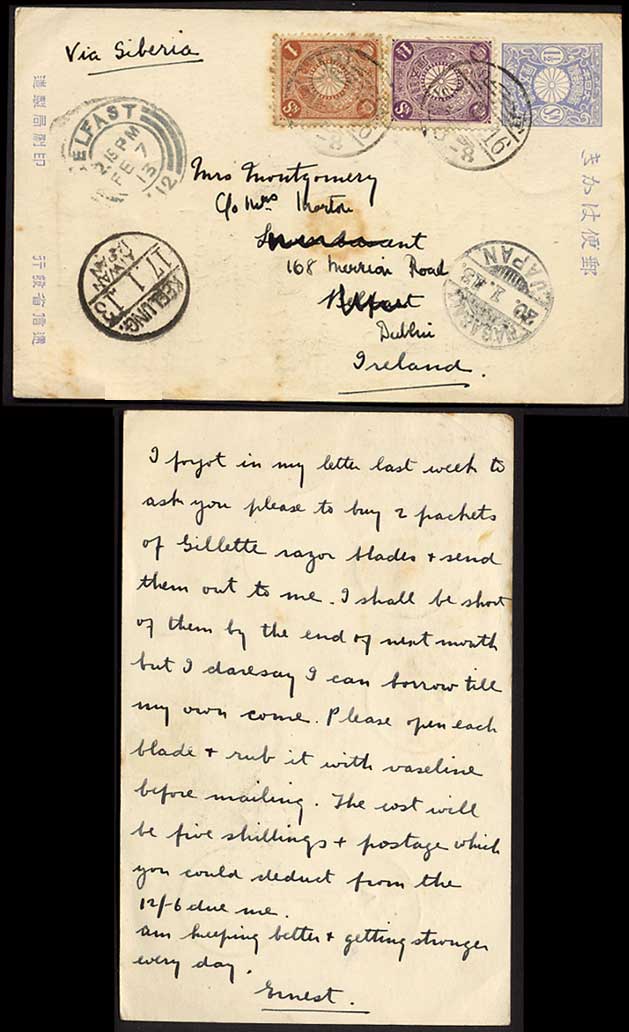 Via Siberia
BELFAST
2.15 PM
FE 7
13
12
KEELUNG
17.1.13
JAPAN
20.1.13
郵便はかき
印刷局製造
逓信省発行
Mrs Montgomery
c/o Mrs
168 Merrion Road
Belfast
Dublin
Ireland.
I forgot in my letter last week to
ask you please to buy 2 packets
of Gillette razor blades + send
them out to me. I shall be short
of them by the end of next month
but I daresay I can borrow till
my own come. Please open each
blade + rub it with vaseline
before mailing. The cost will
be five shillings + postage which
you could deduct from the
12/-6 due me.
am keeping better + getting stronger
every day.
Ernest.